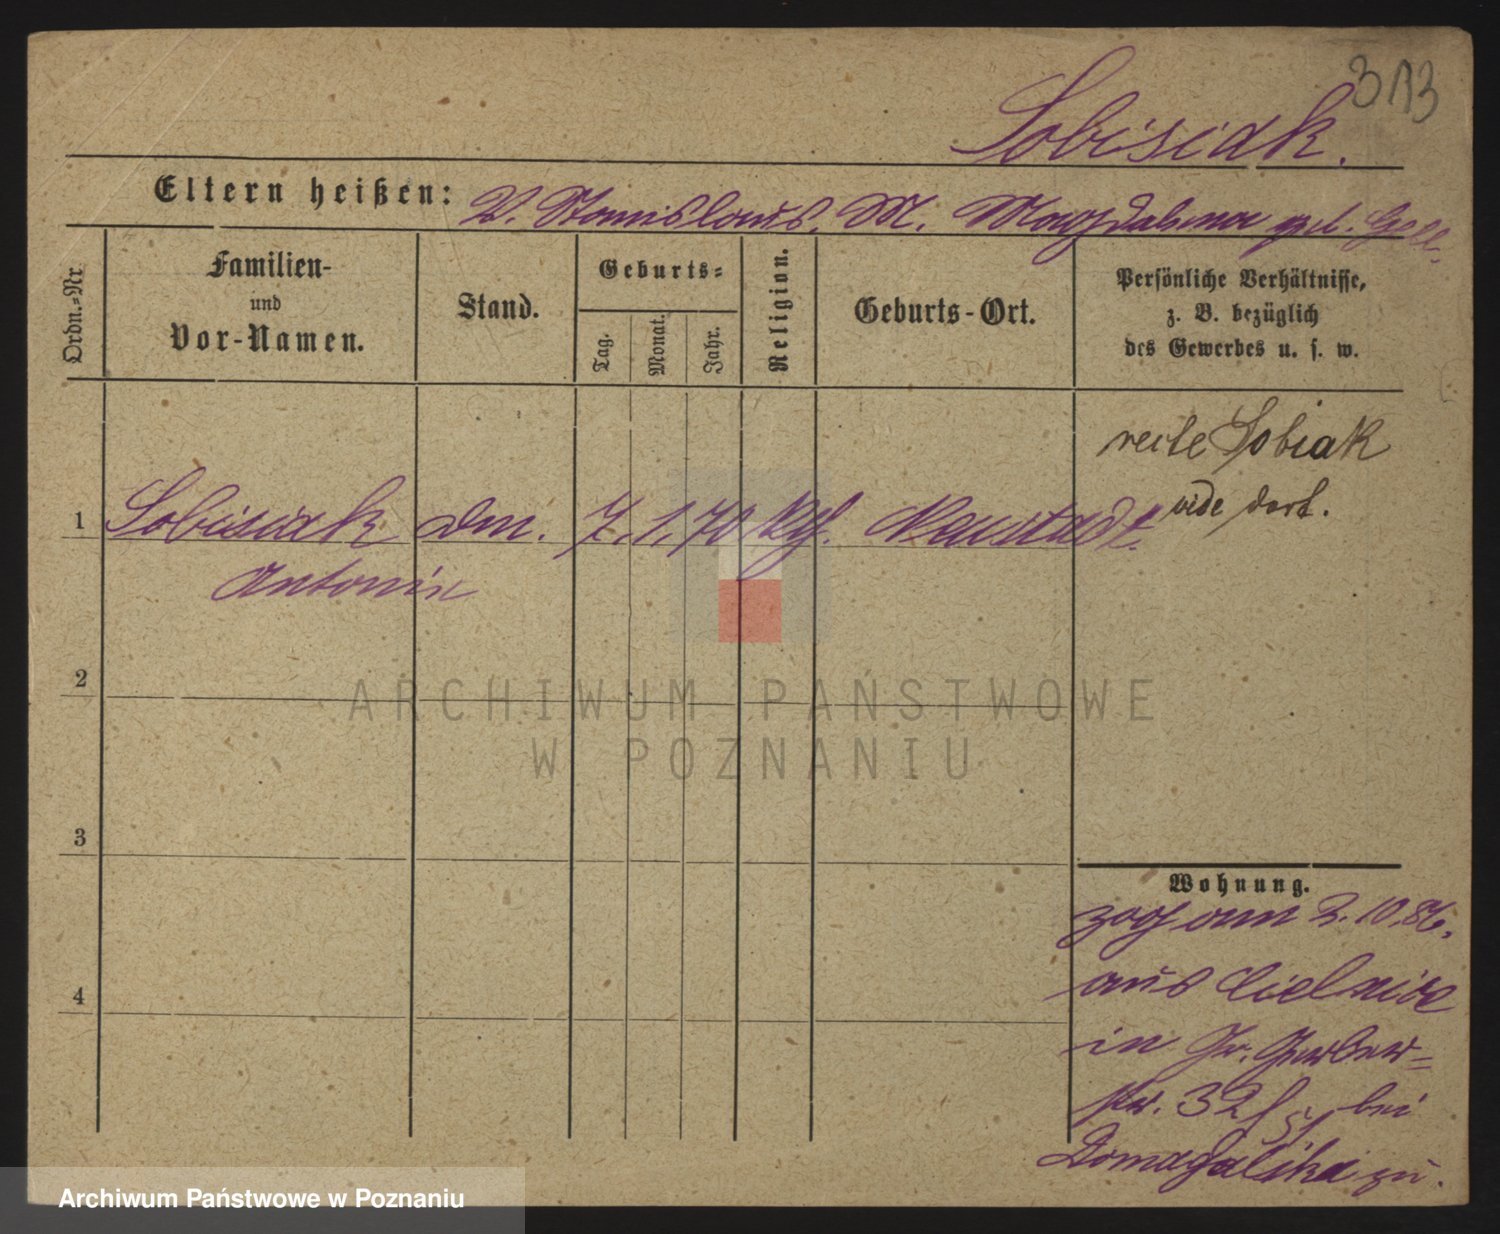 313
Sobisiak.
Eltern heißen: V. Stanislaus, M. Magdalena geb. Gell.
Ordn.-Nr.
Familien-
und
Vor-Namen.
Stand.
Geburts-
Tag.
Monat.
Jahr.
Religion.
Geburts-Ort.
Persönliche Verhältnisse,
z. B. bezüglich
des Gewerbes u. s. w.
recte Sobiak
vide dort.
1 Sobisiak dm. 7. 1. 70 kth. Neustadt.
Antonie
2
3
4
Wohnung.
zog am 3.10.86.
aus
in Gr. Gerber-
str. 32 bei
Domagalska zu.
ARCHIWUM PAŃSTWOWE
W POZNANIU
Archiwum Państwowe w Poznaniu